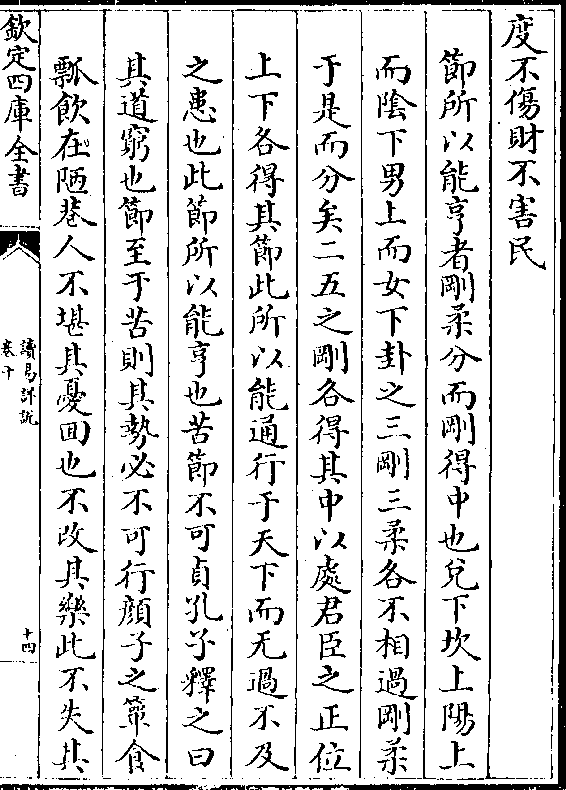 度不傷財不害民
節所以能亨者剛柔分而剛得中也兌下坎上陽上
而陰下男上而女下卦之三剛三柔各不相過剛柔
于是而分矣二五之剛各得其中以處君臣之正位
上下各得其節此所以能通行于天下而无過不及
之患也此節所以能亨也苦節不可貞孔子釋之曰
其道窮也節至于苦則其勢必不可行顔子之簞食
瓢飲在陋巷人不堪其憂回也不改其樂此不失其
欽定四庫全書
讀易詳說
卷十
十四